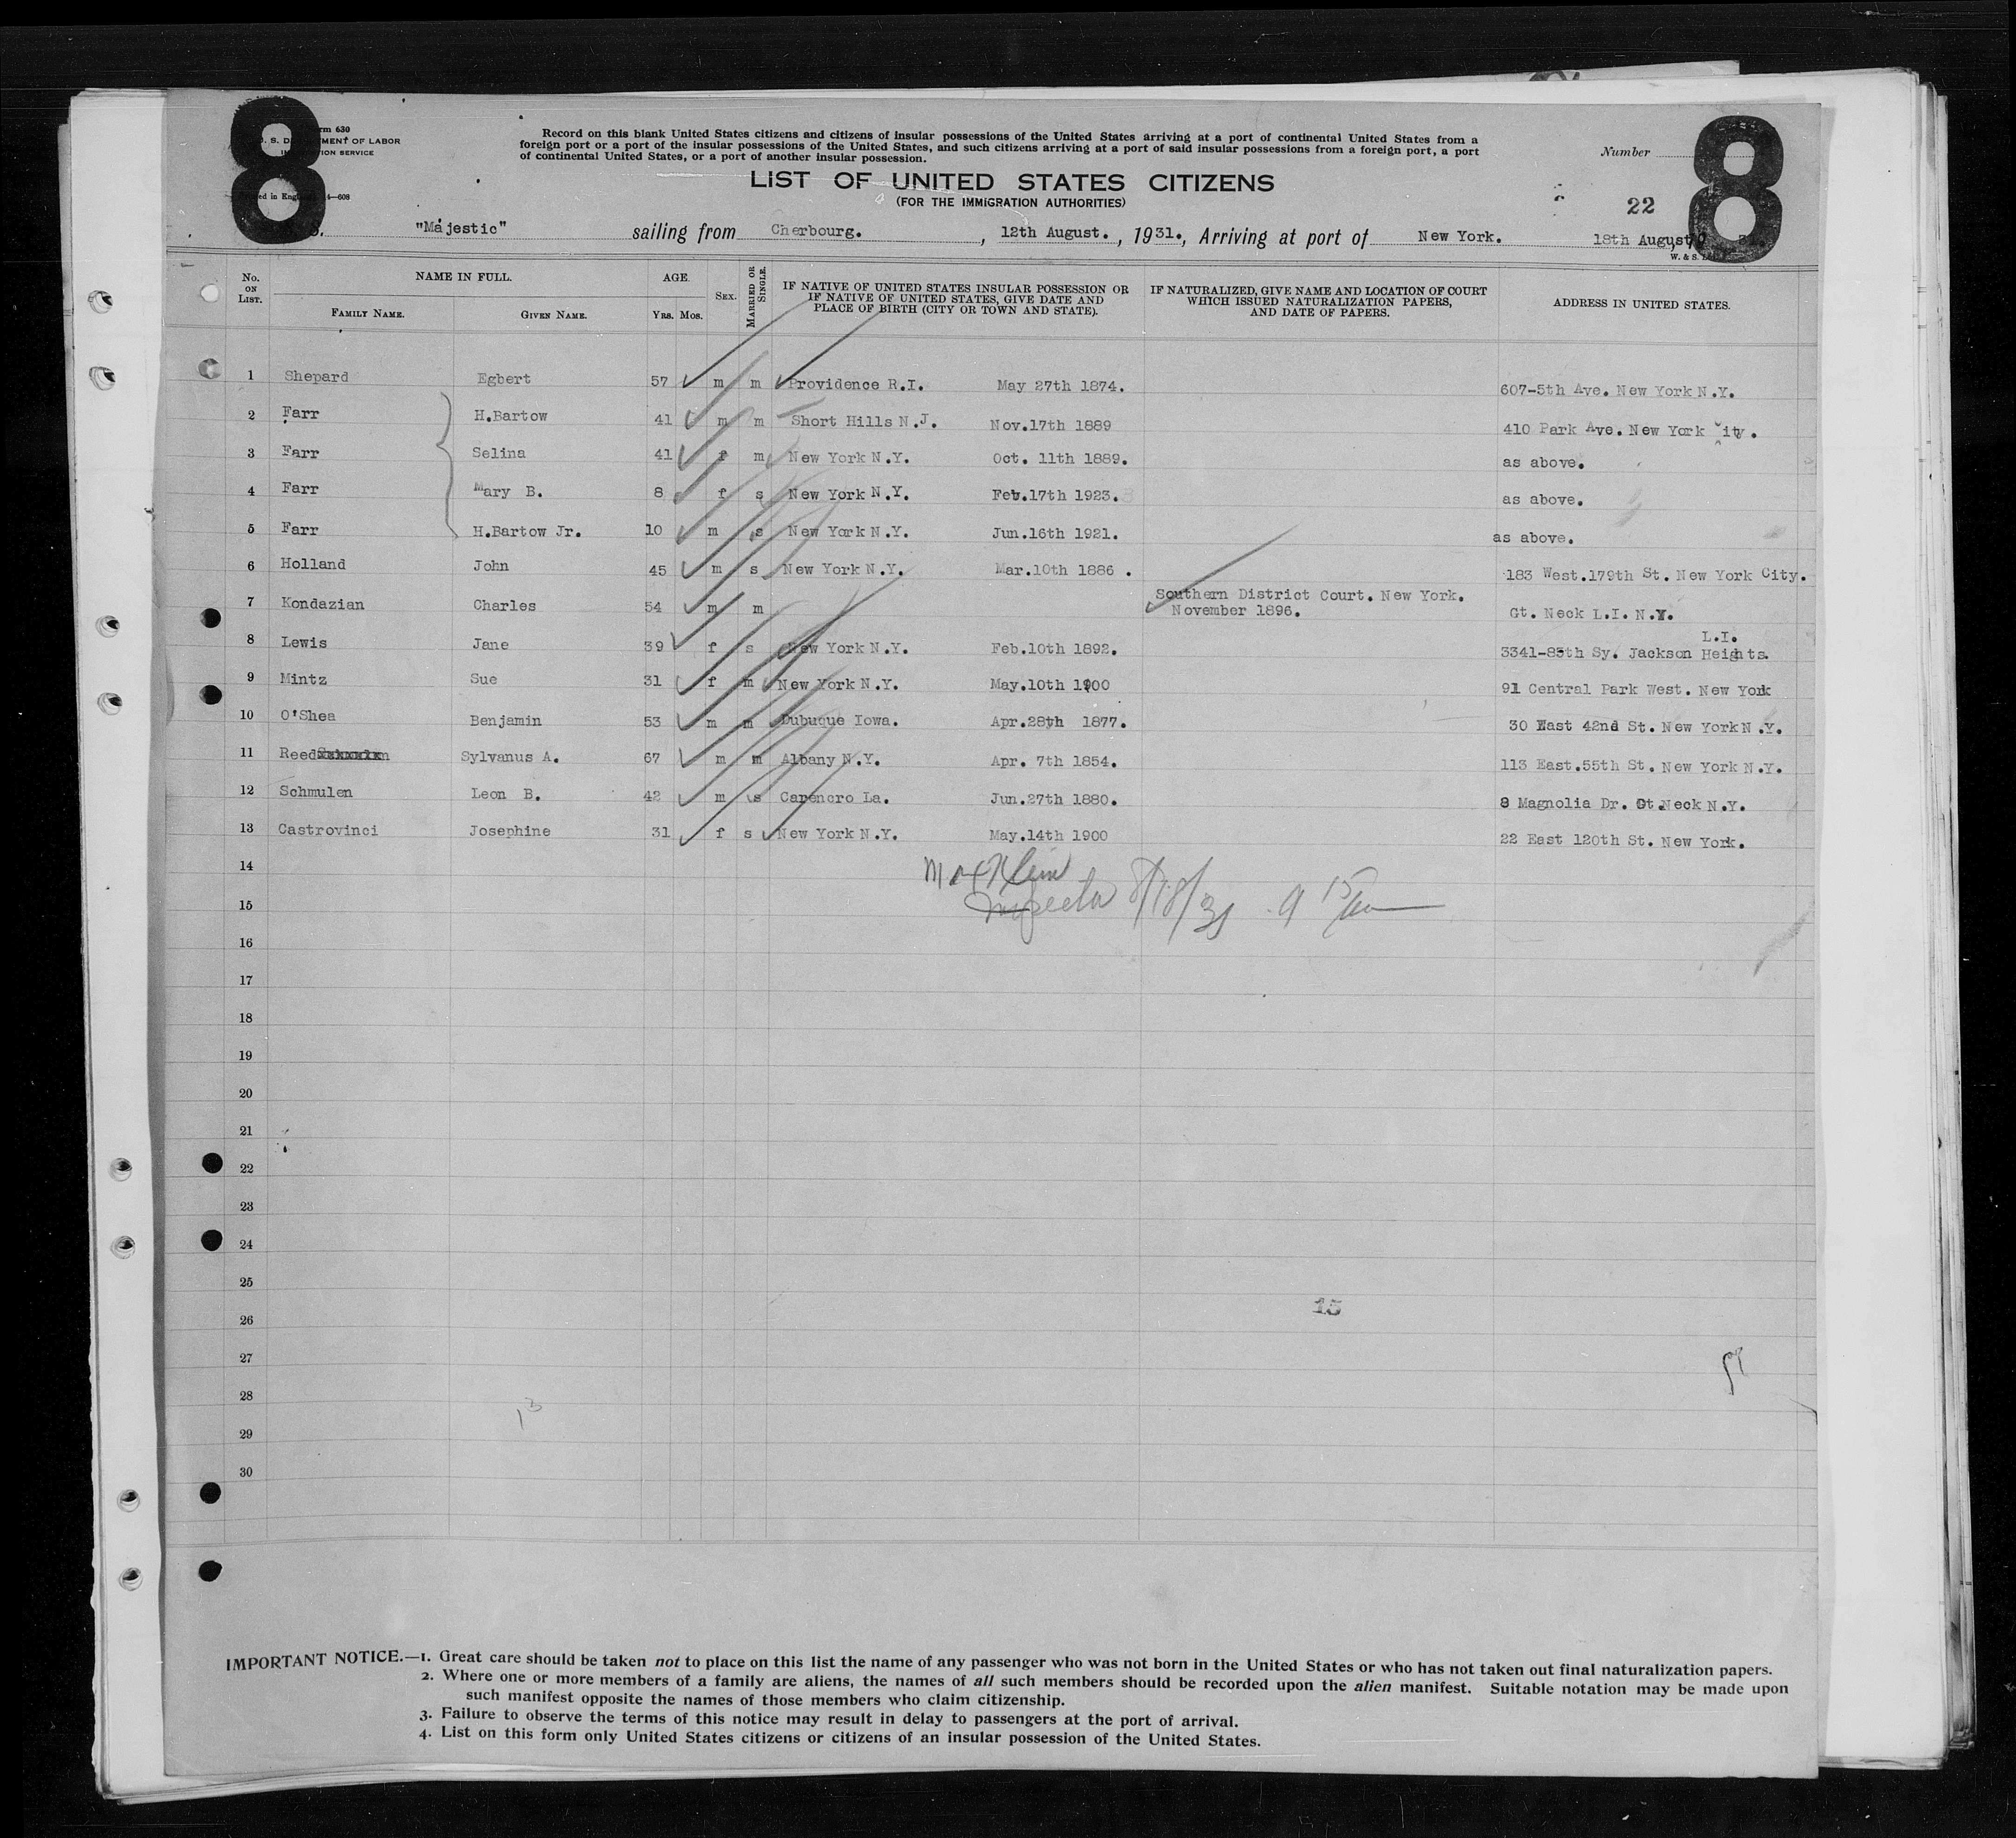 8
8
rm 630
U. S. D MENT OF LABOR
ION SERVICE
ed in Eng 4—608
Record on this blank United States citizens and citizens of insular possessions of the United States arriving at a port of continental United States from a
foreign port or a port of the insular possessions of the United States, and such citizens arriving at a port of said insular possessions from a foreign port, a port
of continental United States, or a port of another insular possession.
Number
LIST OF UNITED STATES CITIZENS
(FOR THE IMMIGRATION AUTHORITIES)
22
S. "Majestic" sailing from Cherbourg. , 12th August. , 1931., Arriving at port of New York. 18th August, 19 31.
W. & S. L
No. ON LIST. NAME IN FULL. AGE. SEX. MARRIED OR SINGLE. IF NATIVE OF UNITED STATES INSULAR POSSESSION OR IF NATIVE OF UNITED STATES, GIVE DATE AND PLACE OF BIRTH (CITY OR TOWN AND STATE). IF NATURALIZED, GIVE NAME AND LOCATION OF COURT WHICH ISSUED NATURALIZATION PAPERS, AND DATE OF PAPERS. ADDRESS IN UNITED STATES.
FAMILY NAME. GIVEN NAME. YRS. MOS.
1 Shepard Egbert 57 m m Providence R.I. May 27th 1874. 607-5th Ave. New York N.Y.
2 Farr H.Bartow 41 m m Short Hills N.J. Nov.17th 1889 410 Park Ave. New York City.
3 Farr Selina 41 f m New York N.Y. Oct. 11th 1889. as above.
4 Farr Mary B. 8 f s New York N.Y. Feb.17th 1923. as above.
5 Farr H.Bartow Jr. 10 m s New York N.Y. Jun.16th 1921. as above.
6 Holland John 45 m s New York N.Y. Mar.10th 1886 . 183 West.179th St. New York City.
7 Kondazian Charles 54 m m Southern District Court. New York. November 1896. Gt. Neck L.I. N.Y.
8 Lewis Jane 39 f s New York N.Y. Feb.10th 1892. 3341-85th Sy. Jackson Heights. L.I.
9 Mintz Sue 31 f m New York N.Y. May.10th 1900 91 Central Park West. New York
10 O'Shea Benjamin 53 m m Dubuque Iowa. Apr.28th 1877. 30 East 42nd St. New York N.Y.
11 Reed Sylvanus A. 67 m m Albany N.Y. Apr. 7th 1854. 113 East.55th St. New York N.Y.
12 Schmulen Leon B. 42 m s Carencro La. Jun.27th 1880. 8 Magnolia Dr. Gt.Neck N.Y.
13 Castrovinci Josephine 31 f s New York N.Y. May.14th 1900 22 East 120th St. New York.
14
Max Klein
15
Inspector 8/18/31 9
16
17
18
19
20
21
22
23
24
25
15
26
27
28
13
29
30
IMPORTANT NOTICE.—1. Great care should be taken not to place on this list the name of any passenger who was not born in the United States or who has not taken out final naturalization papers.
2. Where one or more members of a family are aliens, the names of all such members should be recorded upon the alien manifest. Suitable notation may be made upon
such manifest opposite the names of those members who claim citizenship.
3. Failure to observe the terms of this notice may result in delay to passengers at the port of arrival.
4. List on this form only United States citizens or citizens of an insular possession of the United States.